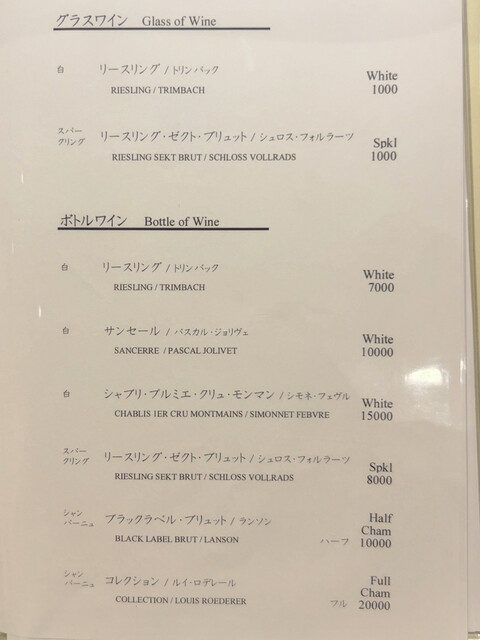 グラスワイン Glass of Wine
白 リースリング / トリンバック White
RIESLING / TRIMBACH 1000
スパークリング リースリング・ゼクト・ブリュット / シュロス・フォルラーツ Spkl
RIESLING SEKT BRUT / SCHLOSS VOLLRADS 1000
ボトルワイン Bottle of Wine
白 リースリング / トリンバック White
RIESLING / TRIMBACH 7000
白 サンセール / パスカル・ジョリヴェ White
SANCERRE / PASCAL JOLIVET 10000
白 シャブリ・プルミエ・クリュ・モンマン / シモネ・フェヴル White
CHABLIS 1ER CRU MONTMAINS / SIMONNET FEBVRE 15000
スパークリング リースリング・ゼクト・ブリュット / シュロス・フォルラーツ Spkl
RIESLING SEKT BRUT / SCHLOSS VOLLRADS 8000
シャンパーニュ ブラックラベル・ブリュット / ランソン Half
Cham
BLACK LABEL BRUT / LANSON ハーフ 10000
シャンパーニュ コレクション / ルイ・ロデレール Full
Cham
COLLECTION / LOUIS ROEDERER フル 20000